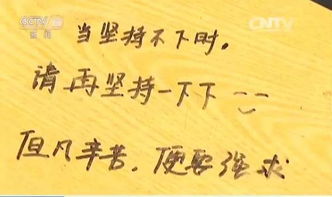 CCTV
CNTV
当坚持不下时。
请再坚持一下下
但凡辛苦，便要强求